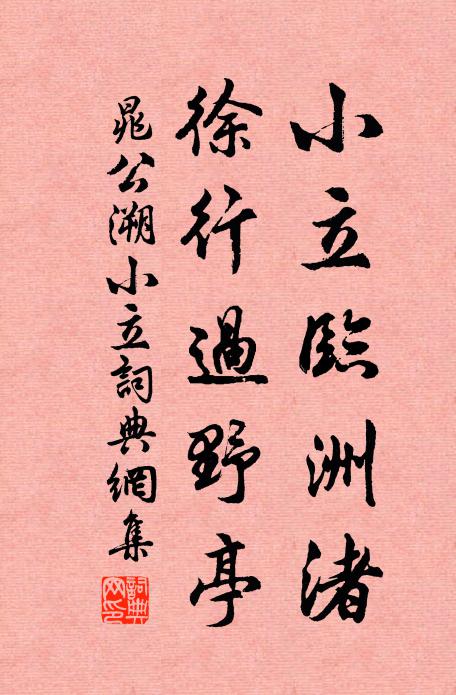 小立臨洲渚
徐行過野亭
晁公溯小立詞典網集
詞典網印